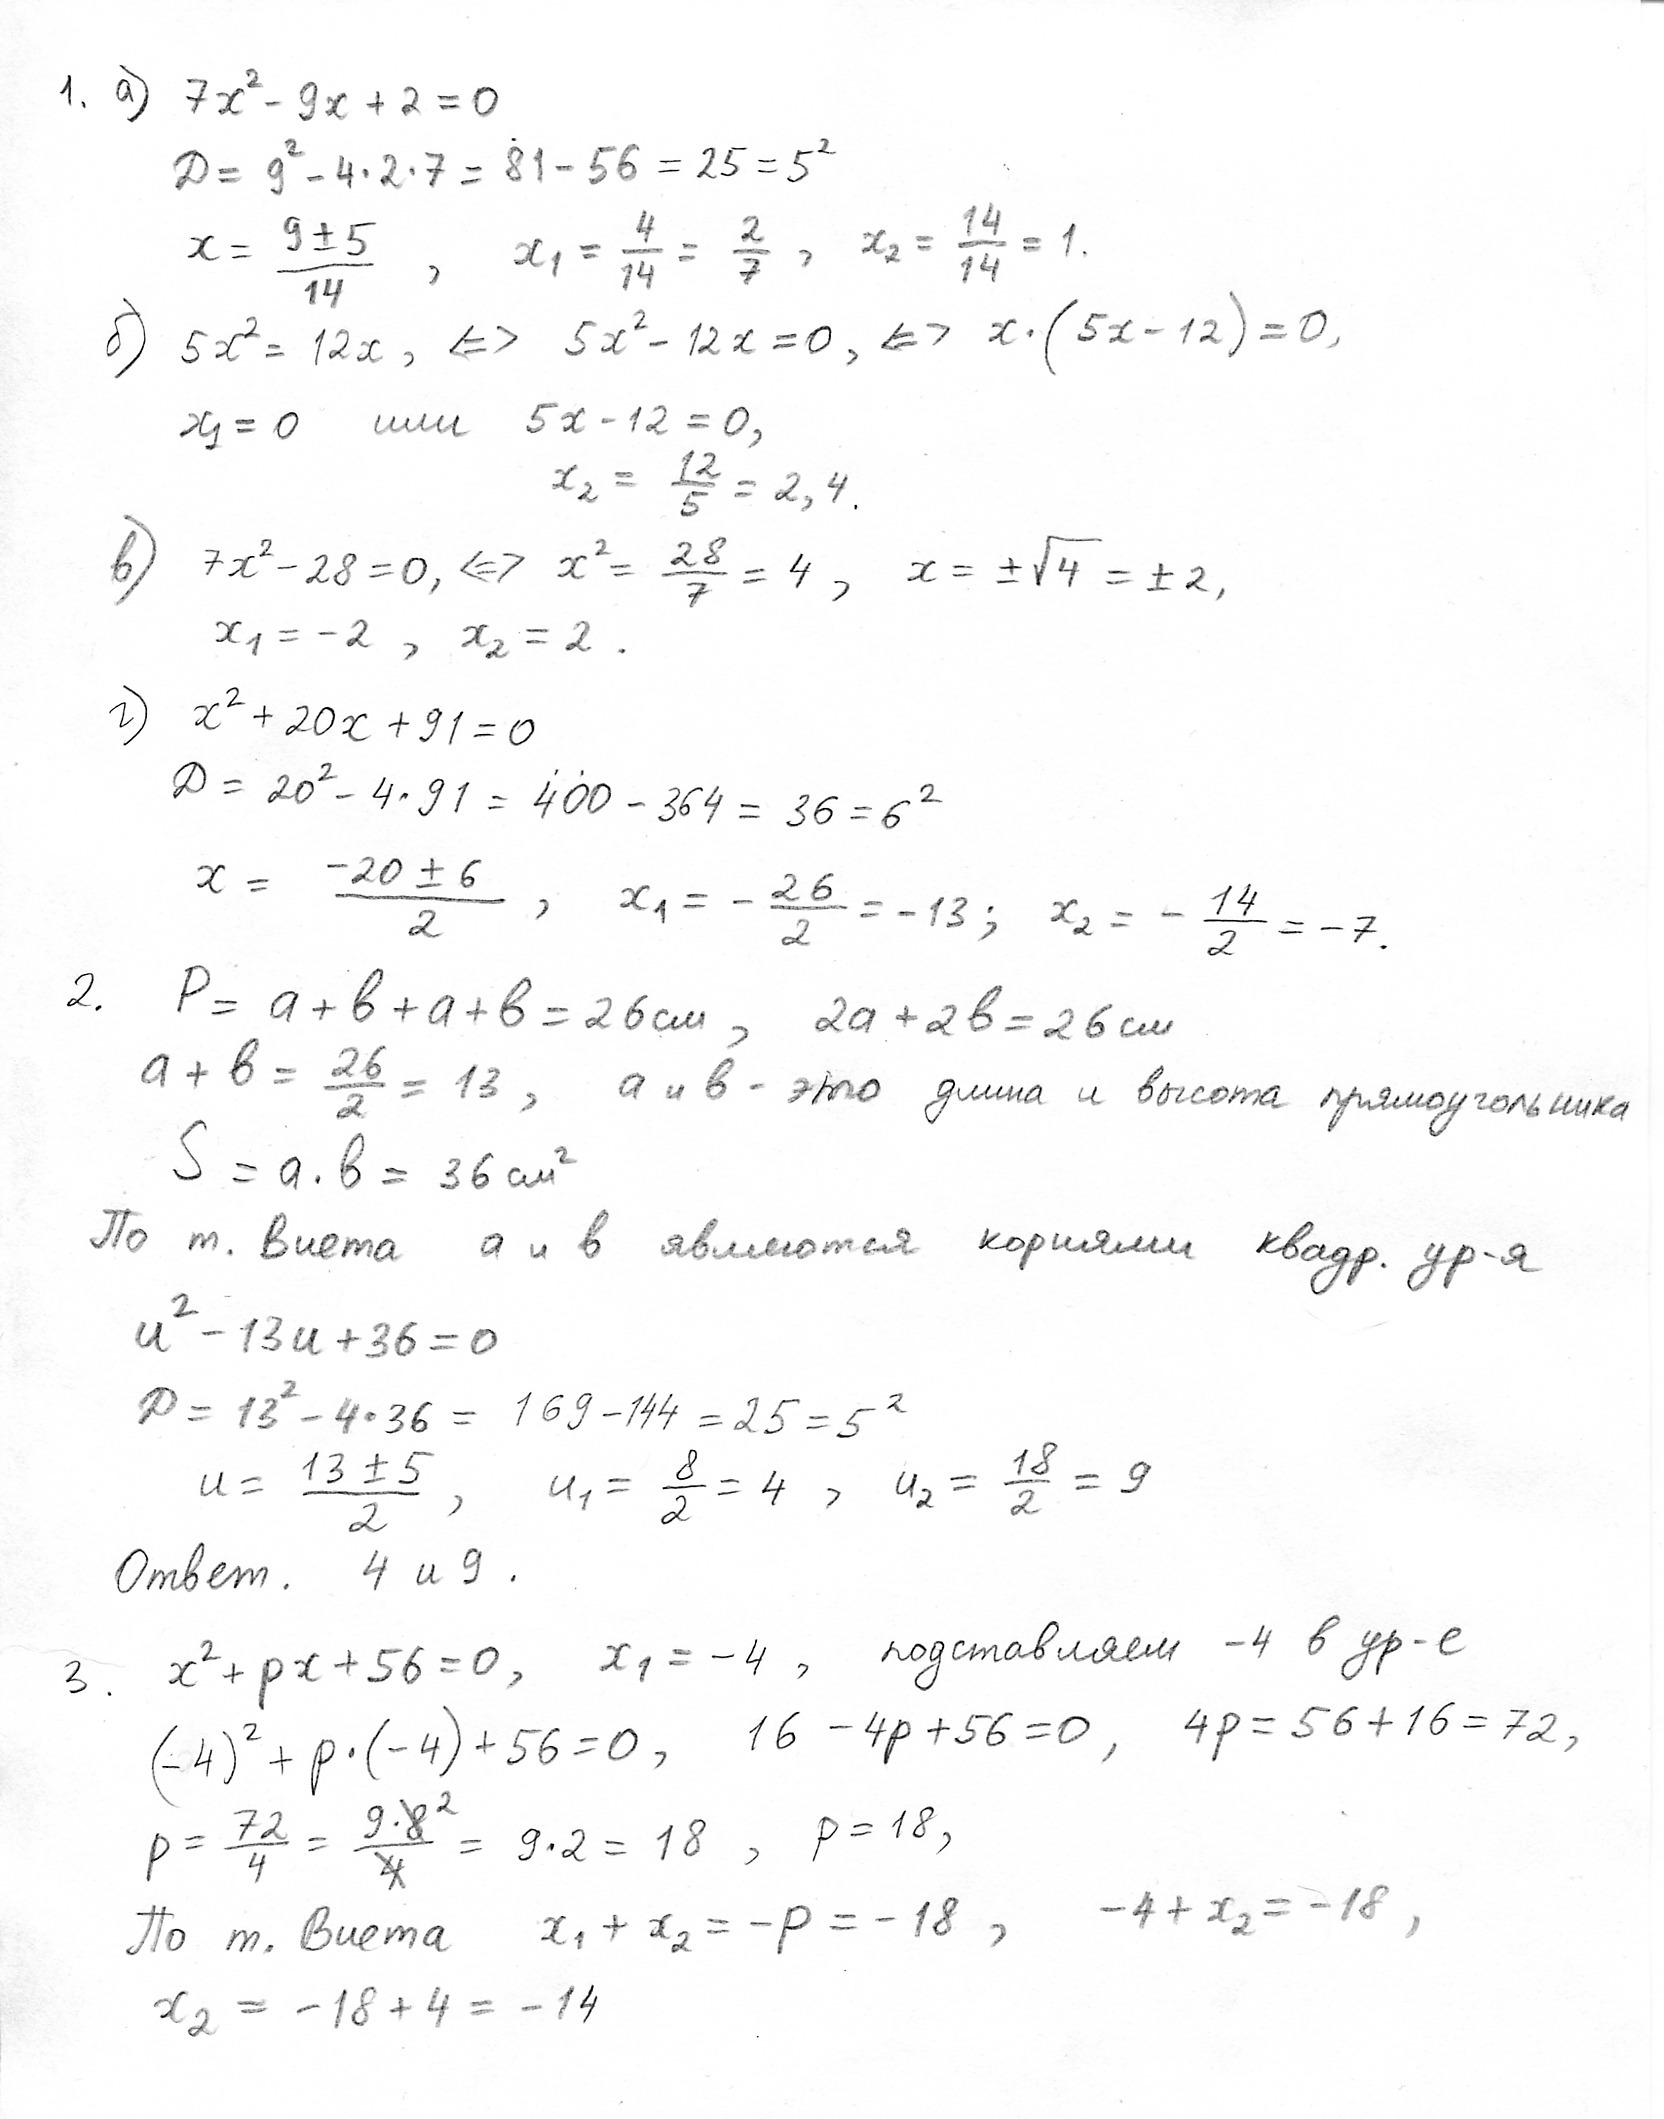 1. а) 7x² - 9x + 2 = 0
D = 9² - 4·2·7 = 81 - 56 = 25 = 5²
x = (9 ± 5)/14, x₁ = 4/14 = 2/7, x₂ = 14/14 = 1.
б) 5x² = 12x, <=> 5x² - 12x = 0, <=> x·(5x - 12) = 0,
x₁ = 0 или 5x - 12 = 0,
x₂ = 12/5 = 2,4.
в) 7x² - 28 = 0, <=> x² = 28/7 = 4, x = ±√4 = ±2,
x₁ = -2, x₂ = 2.
г) x² + 20x + 91 = 0
D = 20² - 4·91 = 400 - 364 = 36 = 6²
x = (-20 ± 6)/2, x₁ = -26/2 = -13; x₂ = -14/2 = -7.
2. P = a + b + a + b = 26 см, 2a + 2b = 26 см
a + b = 26/2 = 13, a и b - это длина и высота прямоугольника
S = a·b = 36 см²
По т. Виета a и b являются корнями квадр. ур-я
u² - 13u + 36 = 0
D = 13² - 4·36 = 169 - 144 = 25 = 5²
u = (13 ± 5)/2, u₁ = 8/2 = 4, u₂ = 18/2 = 9
Ответ. 4 и 9.
3. x² + px + 56 = 0, x₁ = -4, подставляем -4 в ур-е
(-4)² + p·(-4) + 56 = 0, 16 - 4p + 56 = 0, 4p = 56 + 16 = 72,
p = 72/4 = 9·8²/4 = 9·2 = 18, p = 18,
По т. Виета x₁ + x₂ = -p = -18, -4 + x₂ = -18,
x₂ = -18 + 4 = -14